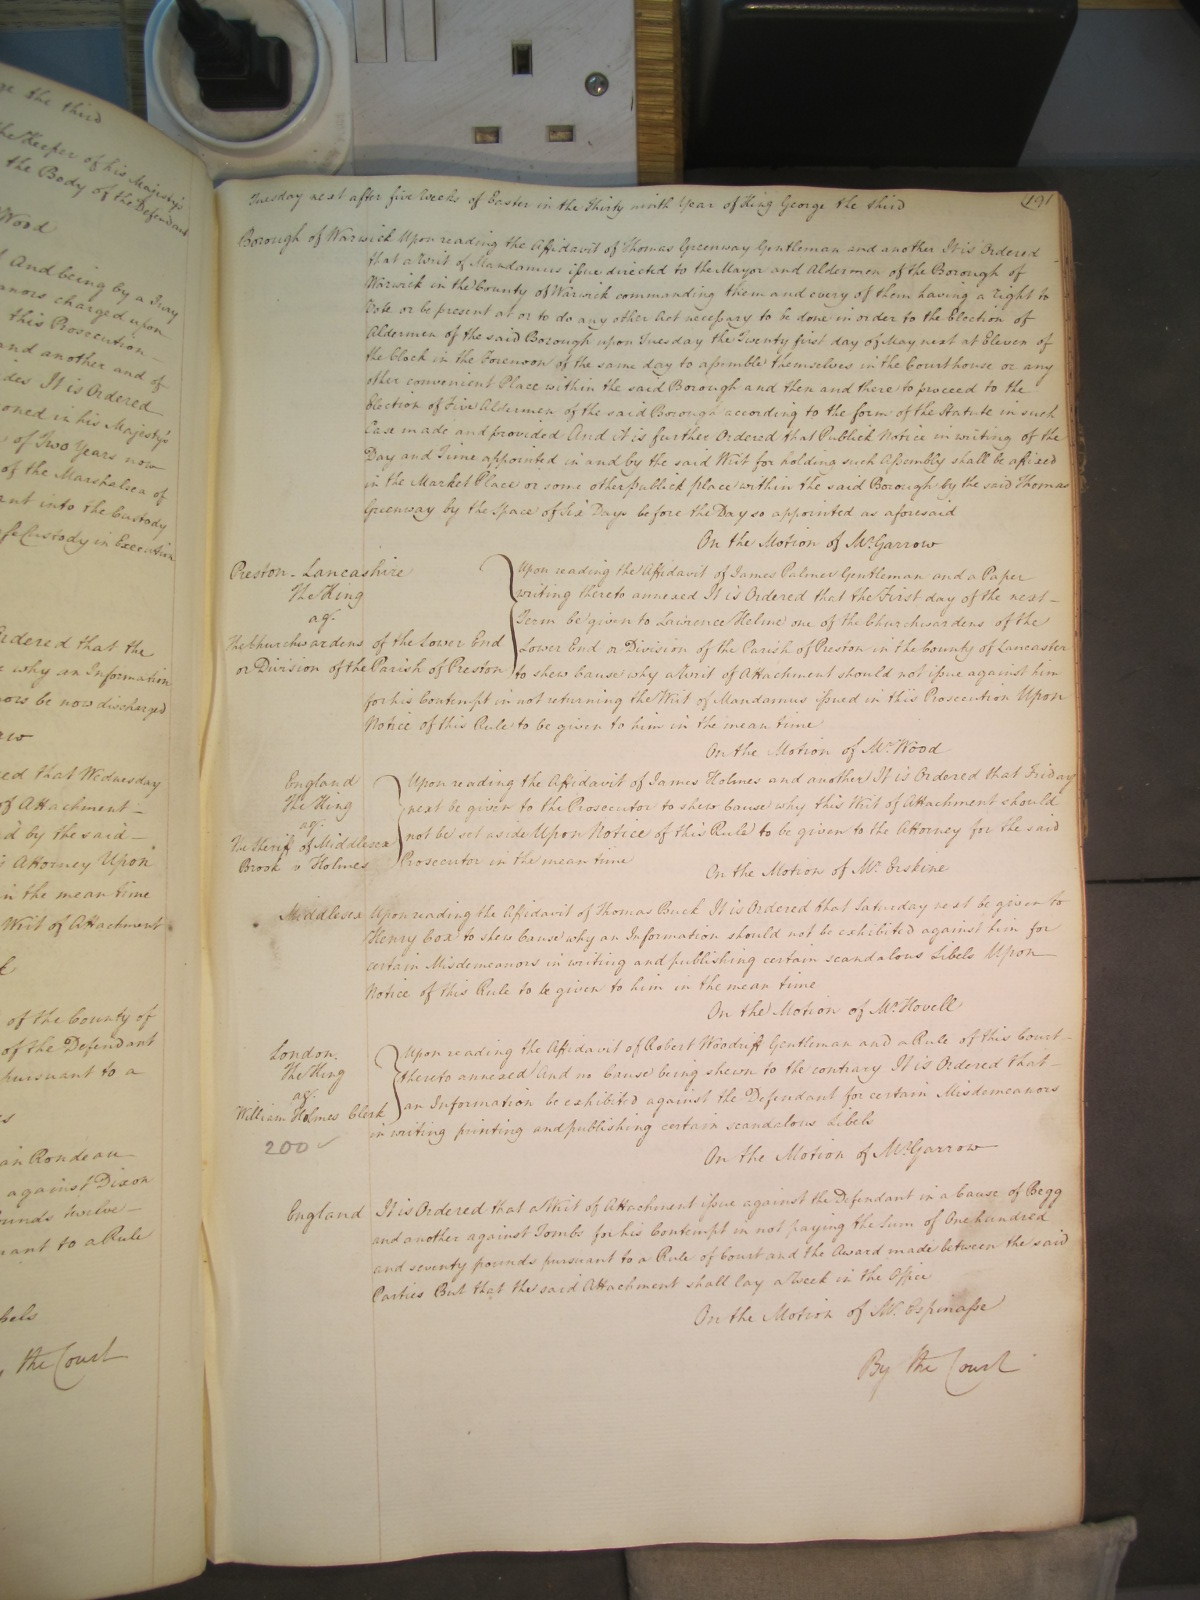 ge the third
the Keeper of his Majesty's
the Body of the Defendant
Wood
And being by a Jury
anors charged upon
this Prosecution
and another and of
ides It is Ordered
oned in his Majesty's
of Two Years now
of the Marshalsea of
ant into the Custody
afe Custody in Execution
Ordered that the
why an Information
nors be now discharged
aw
red that Wednesday
of Attachment
d by the said
Attorney Upon
in the mean time
Writ of Attachment
of the County of
of the Defendant
pursuant to a
an Rondeau
against Dixon
ounds twelve
uant to a Rule
bels
the Court
Tuesday next after five Weeks of Easter in the Thirty ninth Year of King George the third
191
Borough of Warwick Upon reading the Affidavit of Thomas Greenway Gentleman and another It is Ordered
that a Writ of Mandamus issue directed to the Mayor and Aldermen of the Borough of
Warwick in the County of Warwick commanding them and every of them having a right to
Vote or be present at or to do any other Act necessary to be done in order to the Election of
Aldermen of the said Borough upon Tuesday the Twenty first day of May next at Eleven of
the Clock in the Forenoon of the same day to assemble themselves in the Courthouse or any
other convenient Place within the said Borough and then and there to proceed to the
Election of Five Aldermen of the said Borough according to the form of the Statute in such
Case made and provided And it is further Ordered that Publick Notice in writing of the
Day and Time appointed in and by the said Writ for holding such Assembly shall be affixed
in the Market Place or some other publick place within the said Borough by the said Thomas
Greenway by the Space of Six Days before the Day so appointed as aforesaid
On the Motion of Mr. Garrow
Preston - Lancashire
The King
agt.
The Churchwardens of the Lower End
or Division of the Parish of Preston
Upon reading the Affidavit of James Palmer Gentleman and a Paper
writing thereto annexed It is Ordered that the First day of the next
Term be given to Lawrence Helme one of the Churchwardens of the
Lower End or Division of the Parish of Preston in the County of Lancaster
to shew Cause why a Writ of Attachment should not issue against him
for his Contempt in not returning the Writ of Mandamus issued in this Prosecution Upon
Notice of this Rule to be given to him in the mean time
On the Motion of Mr. Wood
England
The King
agt.
The Sheriff of Middlesex
Brook v Holmes
Upon reading the Affidavit of James Holmes and another It is Ordered that Friday
next be given to the Prosecutor to shew Cause why this Writ of Attachment should
not be set aside Upon Notice of this Rule to be given to the Attorney for the said
Prosecutor in the mean time
On the Motion of Mr. Erskine
Middlesex Upon reading the Affidavit of Thomas Buck It is Ordered that Saturday next be given to
Henry Cox to shew Cause why an Information should not be exhibited against him for
certain Misdemeanors in writing and publishing certain scandalous Libels Upon
Notice of this Rule to be given to him in the mean time
On the Motion of Mr. Hovell
London.
The King
agt.
William Holmes Clerk
200
Upon reading the Affidavit of Robert Woodriff Gentleman and a Rule of this Court
thereto annexed And no Cause being shewn to the contrary It is Ordered that
an Information be exhibited against the Defendant for certain Misdemeanors
in writing printing and publishing certain scandalous Libels
On the Motion of Mr. Garrow
England It is Ordered that a Writ of Attachment issue against the Defendant in a Cause of Begg
and another against Tombs for his Contempt in not paying the Sum of One hundred
and seventy pounds pursuant to a Rule of Court and the Award made between the said
Parties But that the said Attachment shall lay a Week in the Office
On the Motion of Mr. Espinasse
By the Court